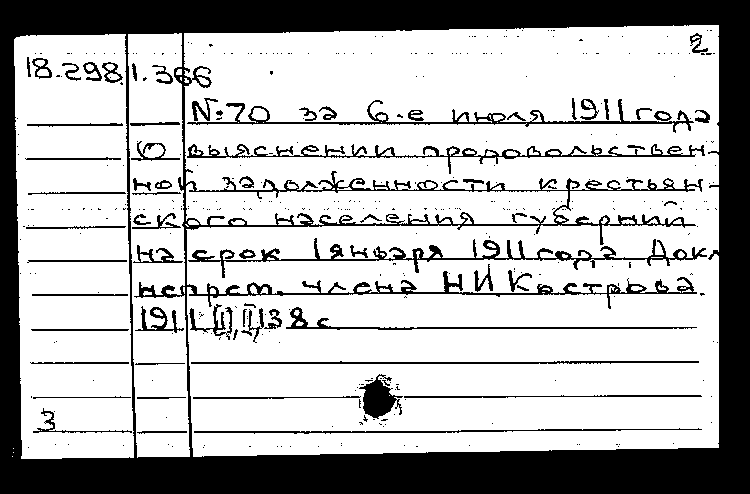 2
18.298.1.366
№70 за 6-е июля 1911 года.
О выяснении продовольствен-
ной задолженности крестьян-
ского населения губерний
на срок 1 января 1911 года. Докл
непрем. члена Н И Кострова.
1911 [II], II, 138 с
3